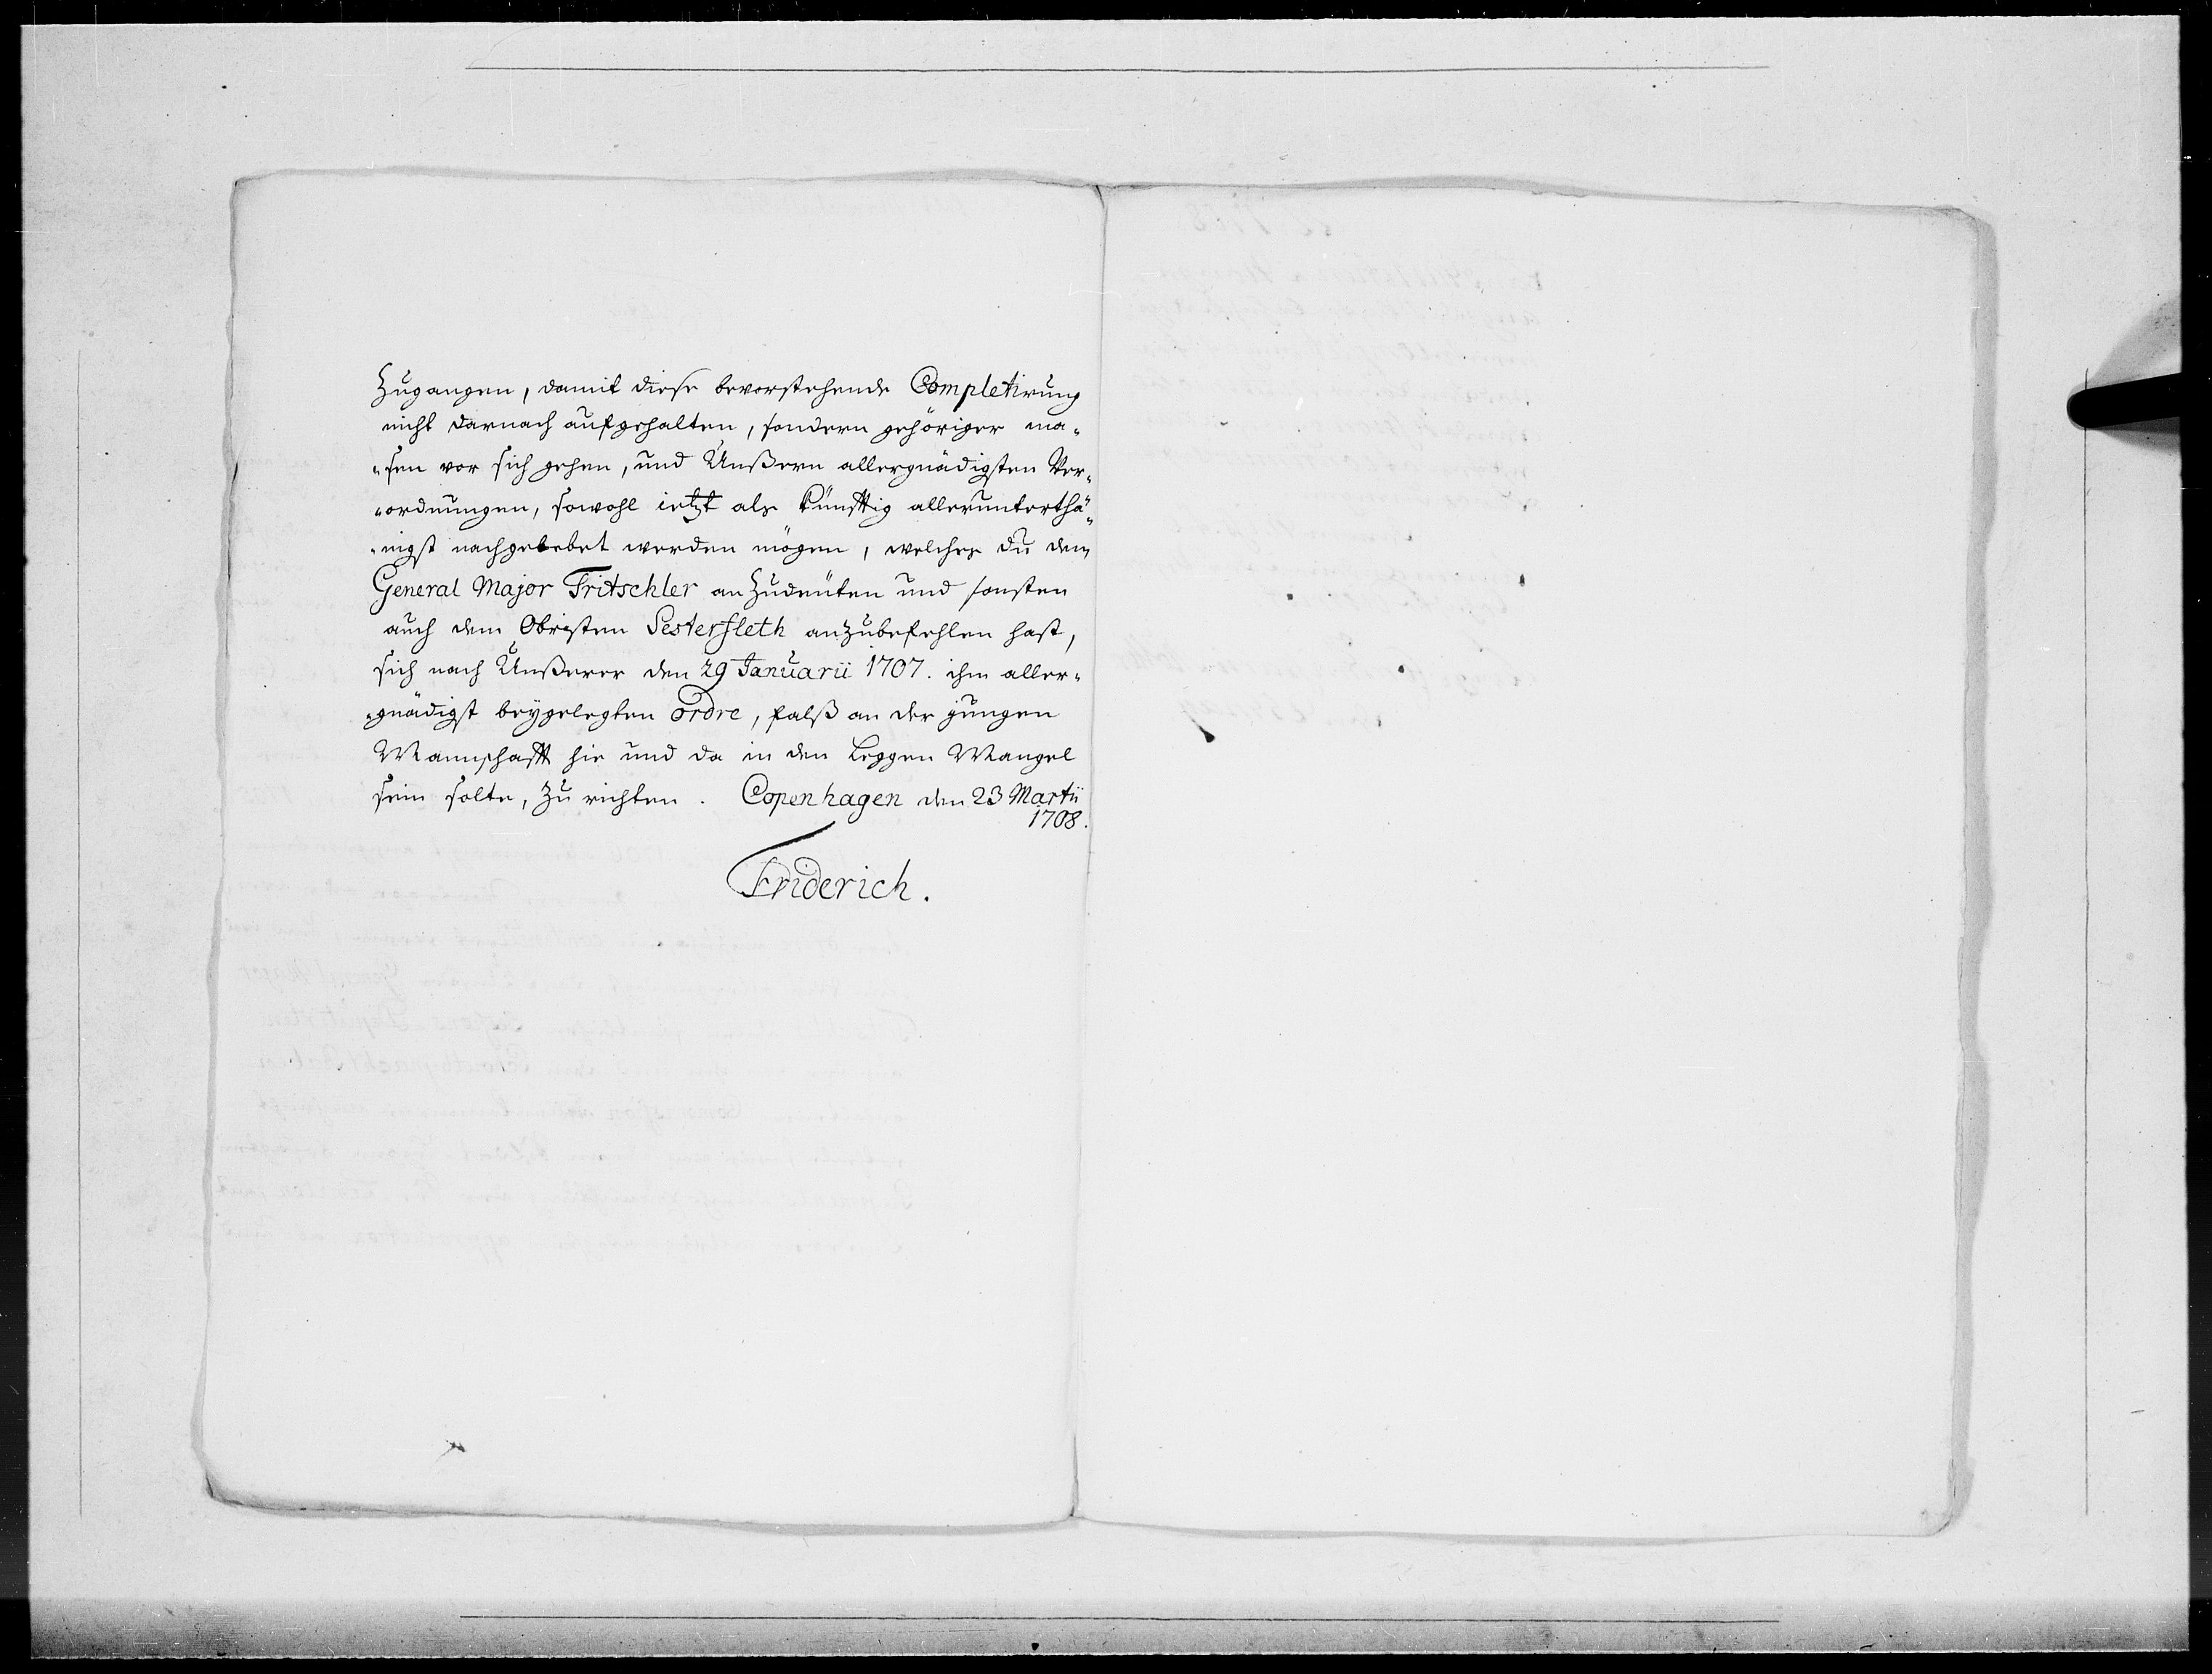 Zugangen, damit diese bevorstehende Completirung
nicht darnach aufgehalten, sondern gehöriger ma-
-sen vor sich gehen, und Unßern allergnädigsten Ver-
-ordnungen, sowohl ietzt als künfftig allerunterthä-
-nigst nachgelebet werden mögen, welches du dem
General Major Fritschler anzudeuten und sonsten
auch dem Obristen Sesterfleth anzubefehlen hast,
sich nach Unßerer den 29 Januarii 1707. ihm aller-
-gnädigst beygelegten ordre, falß an der jungen
Mannschafft hie und da in den Leggen Mangel
sein solte, zu richten. Copenhagen den 23 Martii
1708.
Friderich.